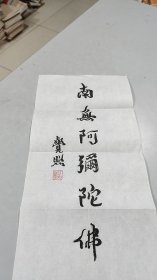 南無阿彌陀佛
覺熙